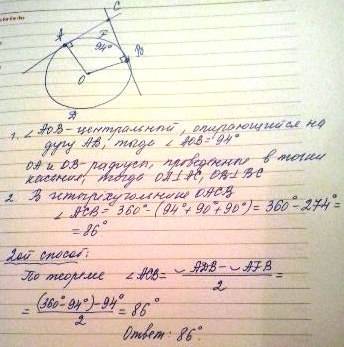 C
A
F
94°
B
O
D
1. ∠AOB - центральный, опирающийся на
дугу AB; тогда ∠AOB = 94°
OA и OB - радиусы, проведенные в точки
касания, тогда OA⊥AC, OB⊥BC
2. В четырёхугольнике OACB
∠ACB = 360° - (94° + 90° + 90°) = 360° - 274° =
= 86°
2ой способ:
По теореме ∠ACB = (◡ADB - ◡AFB) / 2 =
= ((360° - 94°) - 94°) / 2 = 86°
Ответ: 86°.